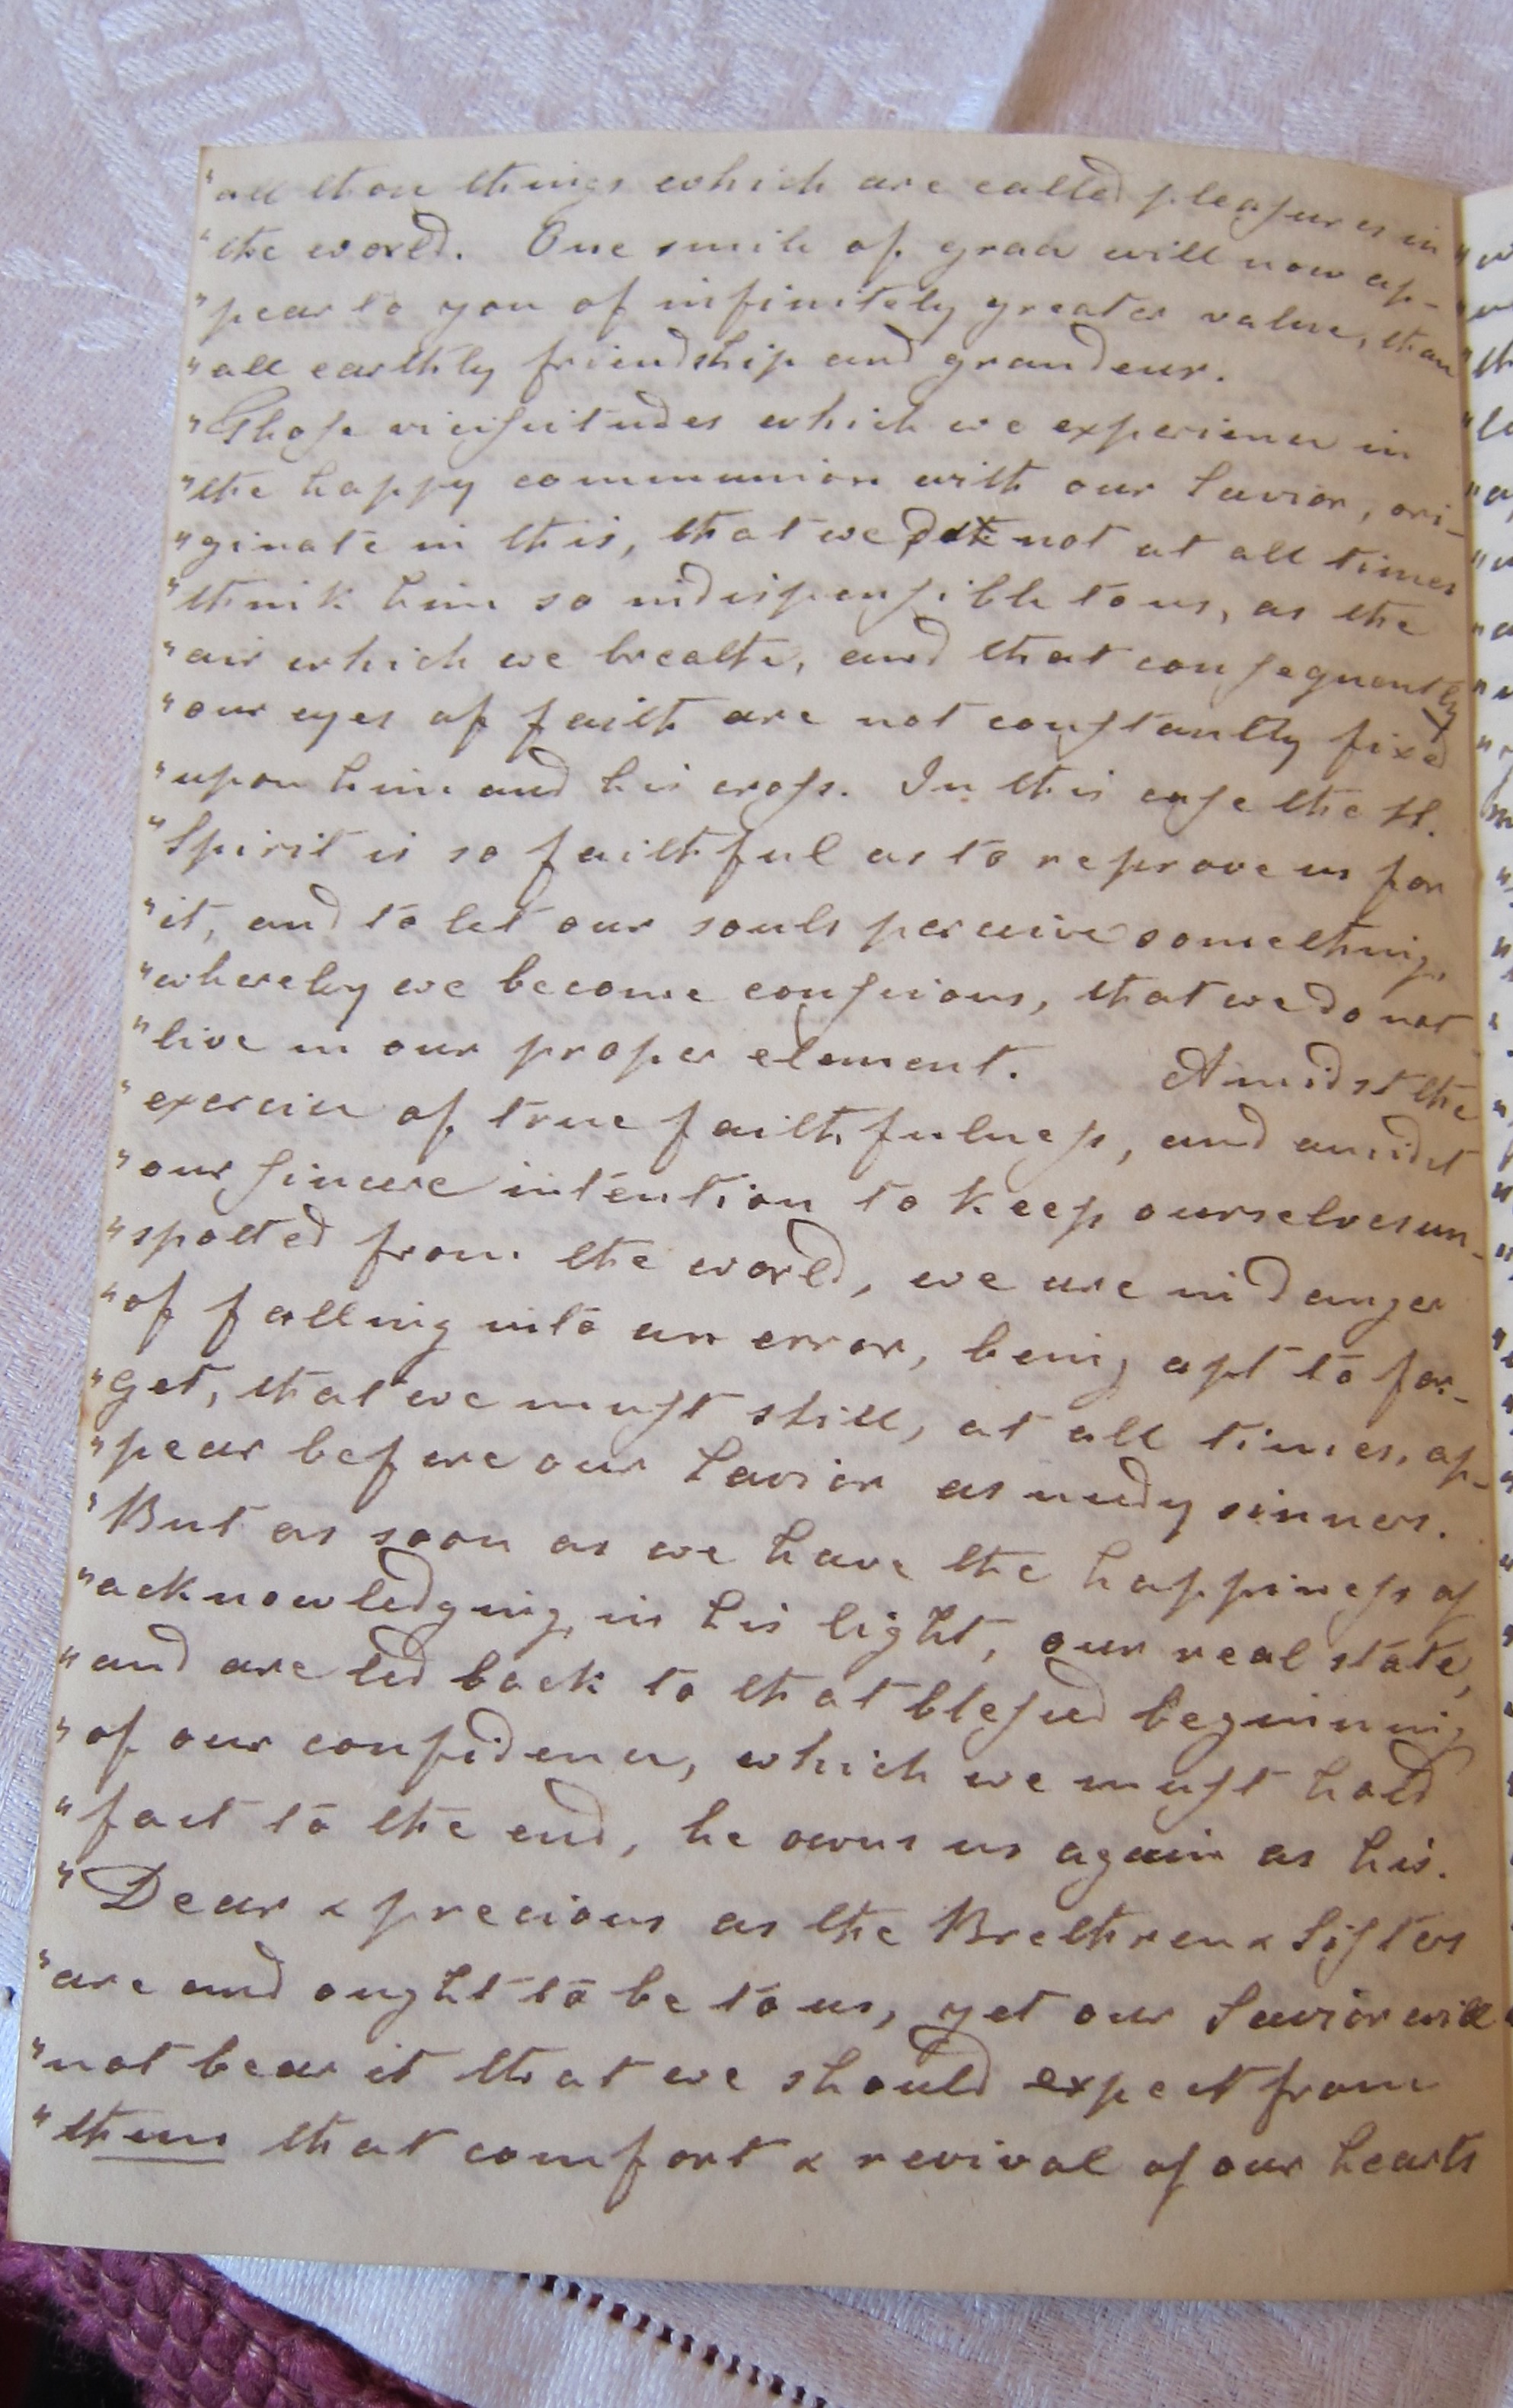 "all those things which are called pleasures in
"the world. One smile of grace will now ap-
"pear to you of infinitely greater value, than
"all earthly friendship and grandeur.
"Those vicissitudes which we experience in
"the happy communion with our Savior, ori-
"ginate in this, that we do not at all times
"think him so indispensible to us, as the
"air which we breathe, and that consequently
"our eyes of faith are not constantly fixed
"upon him and his cross. In this case the H.
"Spirit is so faithful as to reprove us for
"it, and to let our souls perceive something,
"whereby we become conscious, that we do not
"live in our proper element. Amidst the
"exercise of true faithfulness, and amidst
"our sincere intention to keep ourselves un-
"spotted from the world, we are in danger
"of falling into an error, being apt to for-
"get, that we must still, at all times, ap-
"pear before our Savior as needy sinners.
"But as soon as we have the happiness of
"acknowledging, in his light, our real state,
"and are led back to that blessed beginning
"of our confidence, which we must hold
"fast to the end, he owns us again as his.
"Dear & precious as the Brethren & Sisters
"are and ought to be to us, yet our Savior will
"not bear it that we should expect from
"them that comfort & revival of our hearts